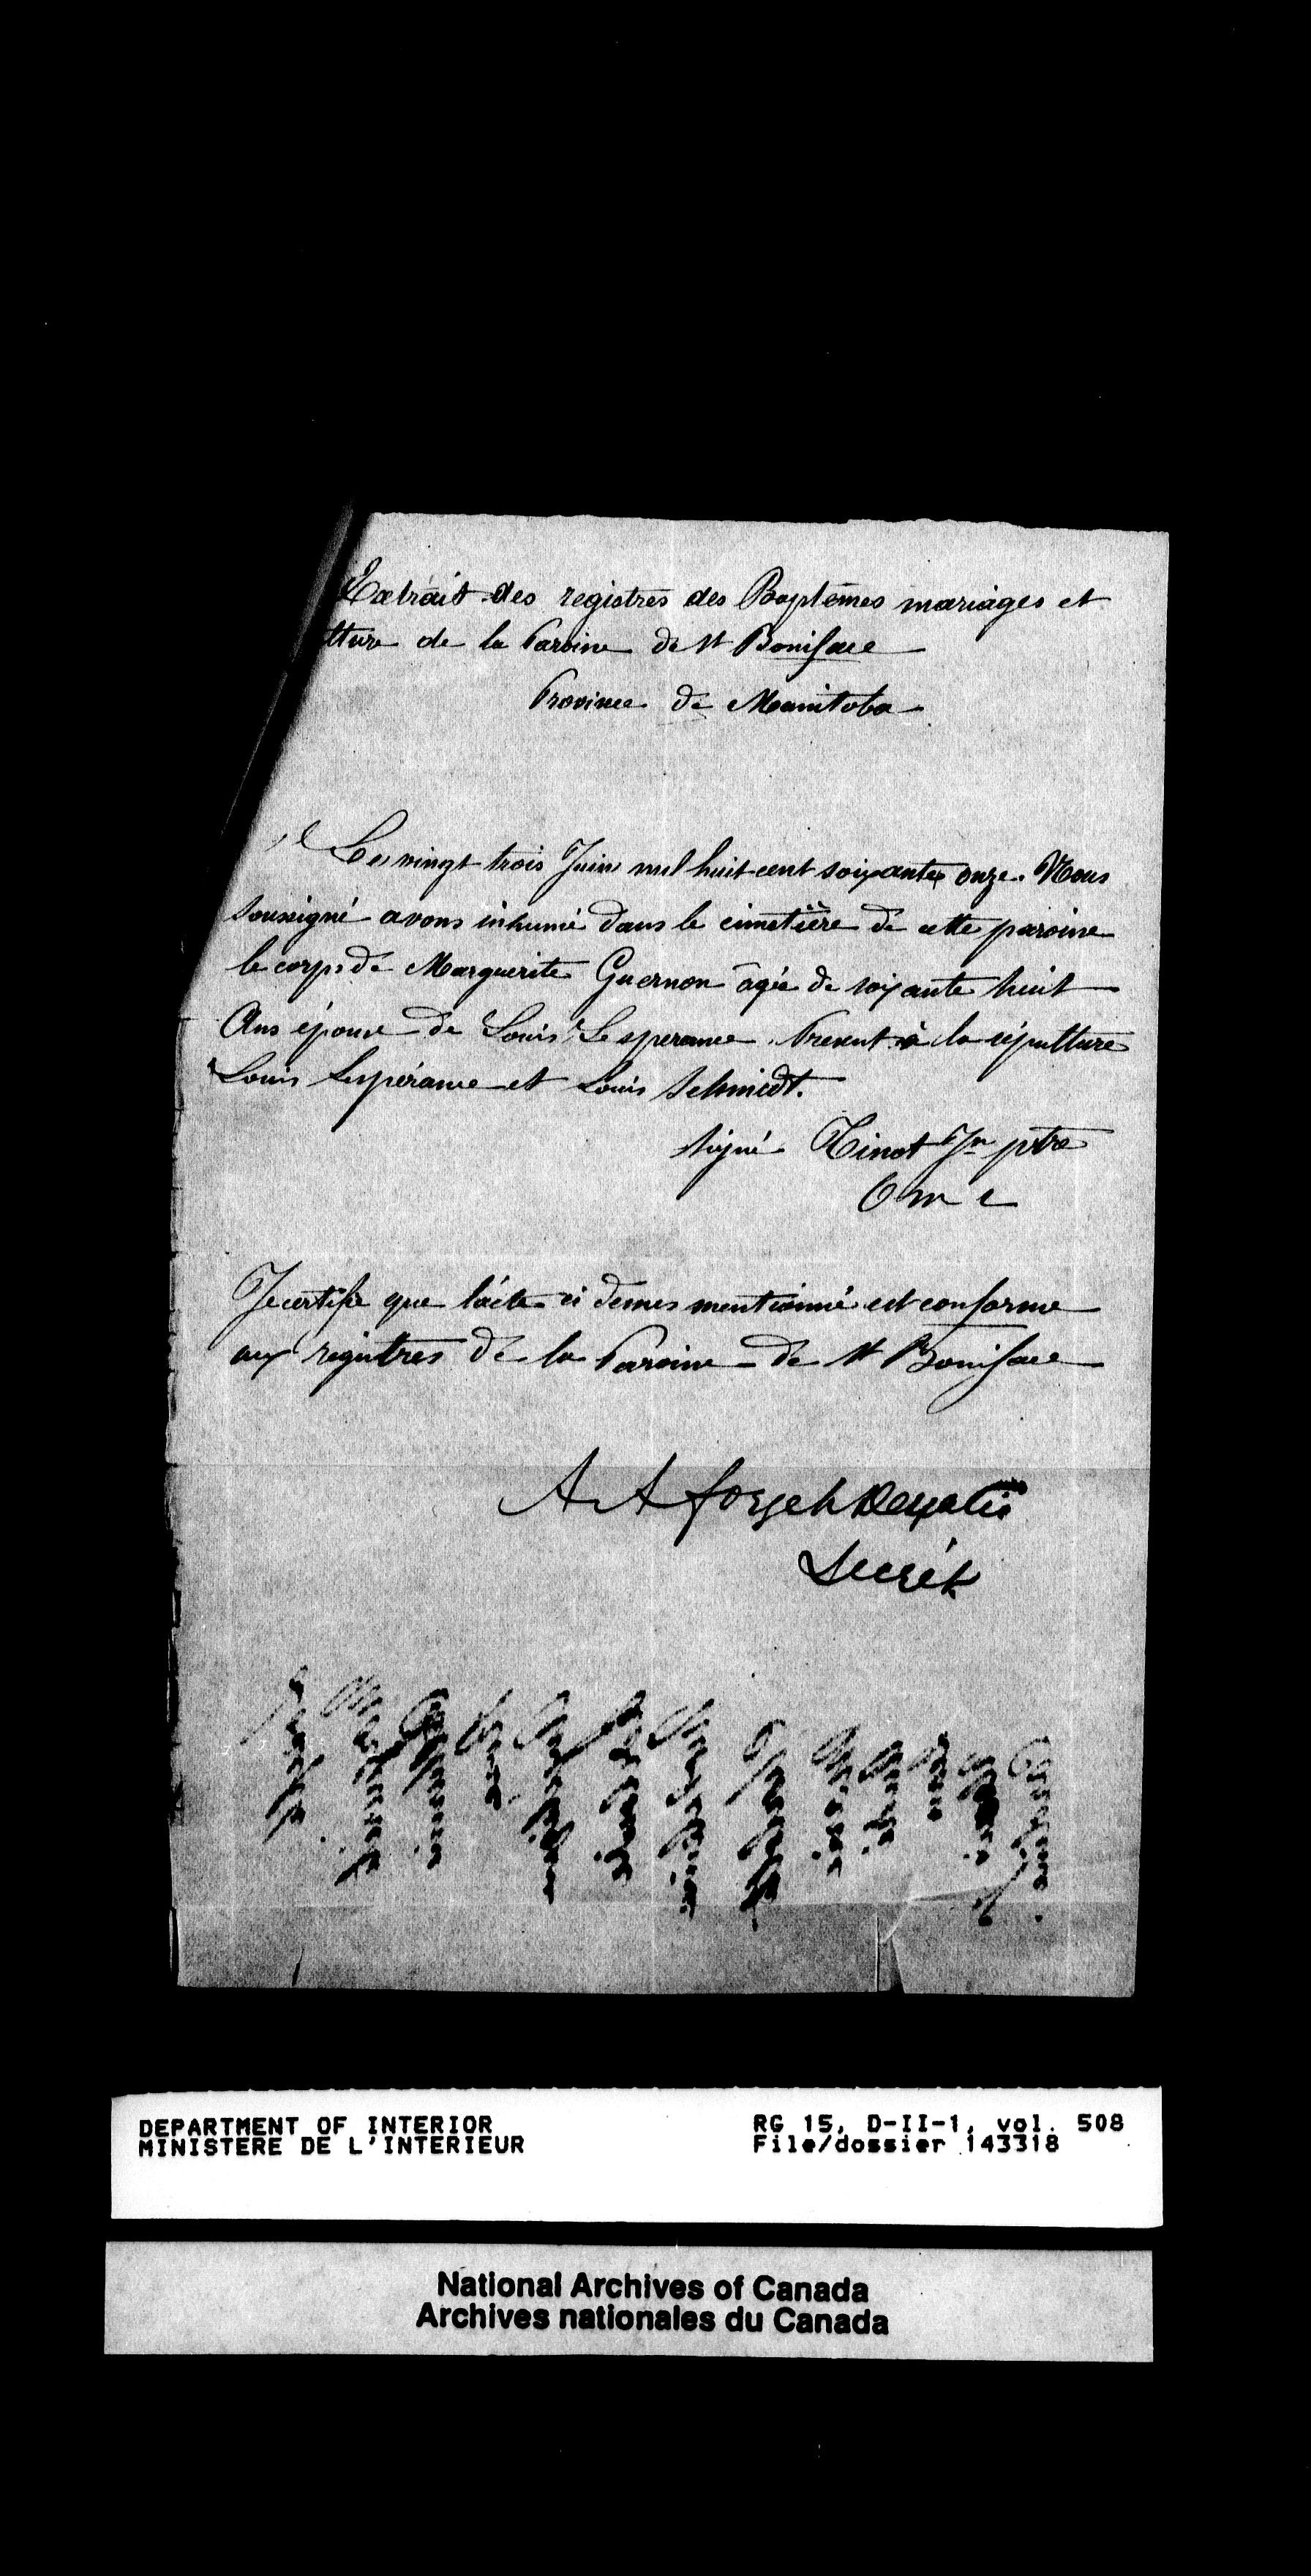 Extrait des registres des Baptêmes mariages et
tture de la Paroisse de St Boniface
Province de Manitoba
Le vingt trois Juin mil huit cent soixante onze. Nous
soussigné avons inhumé dans le cimetière de cette paroisse
le corps de Marguerite Guernon âgée de soixante huit
Ans épouse de Louis Lesperance. Present à la sépultture
Louis Lespérance et Louis Schmidt.
Signé Tinot Jn ptre
O m i
Je certifie que l'acte ci dessus mentionné est conforme
aux registres de la Paroisse de St Boniface
A A forget Despatis
Secrét
DEPARTMENT OF INTERIOR
MINISTERE DE L'INTERIEUR
RG 15, D-II-1, vol. 508
File/dossier 143318
National Archives of Canada
Archives nationales du Canada